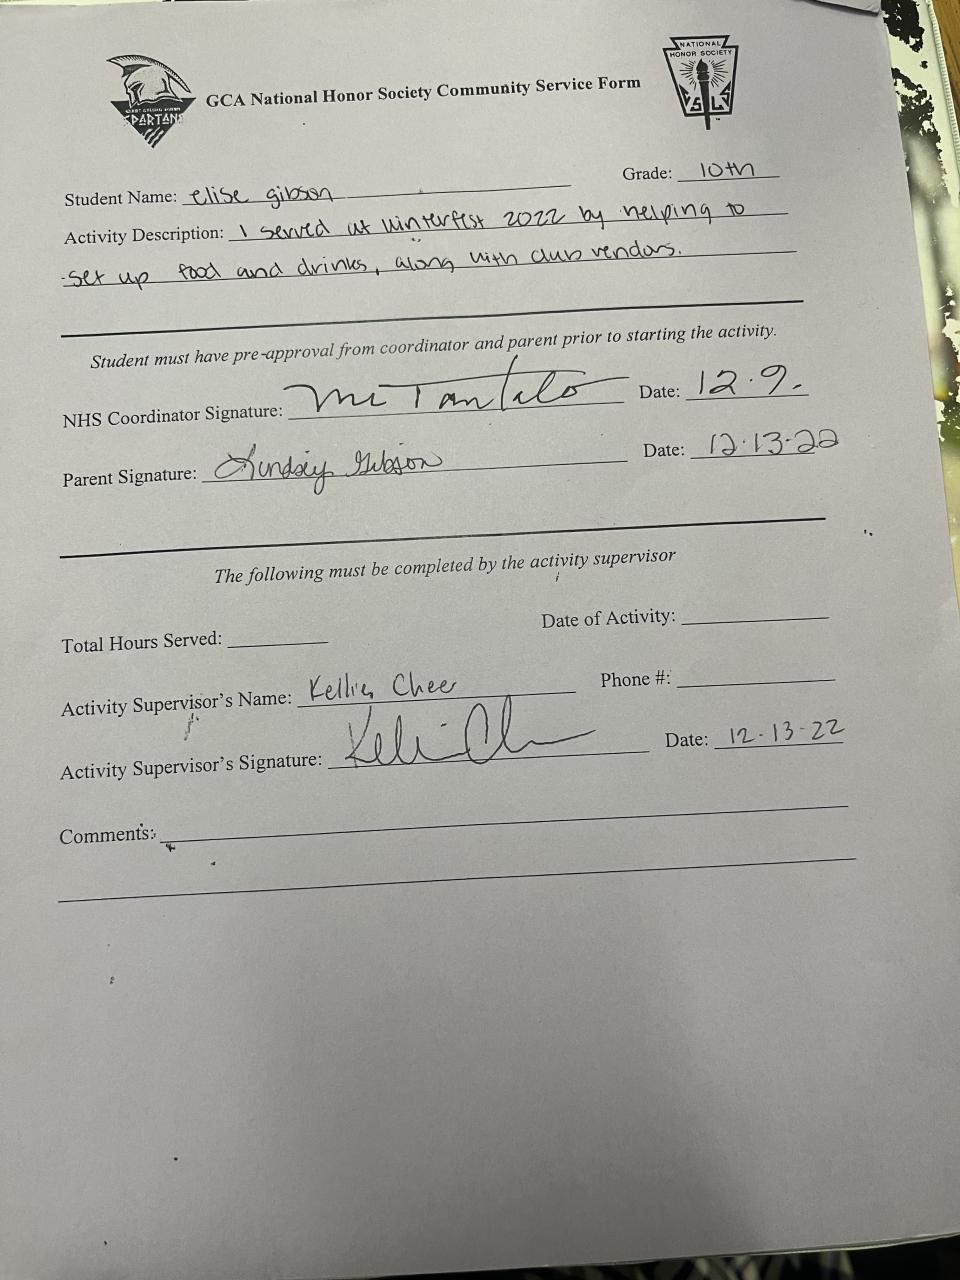 NATIONAL
HONOR SOCIETY
SPARTANS
S L S
GCA National Honor Society Community Service Form
Student Name: elise gibson Grade: 10th
Activity Description: I served at Winterfest 2022 by helping to
set up food and drinks, along with club vendors.
Student must have pre-approval from coordinator and parent prior to starting the activity.
NHS Coordinator Signature: Date: 12.9.
Parent Signature: Lindsey Gibson Date: 12-13-22
The following must be completed by the activity supervisor
Total Hours Served: Date of Activity:
Activity Supervisor's Name: Phone #:
Activity Supervisor's Signature: Date: 12-13-22
Comments: